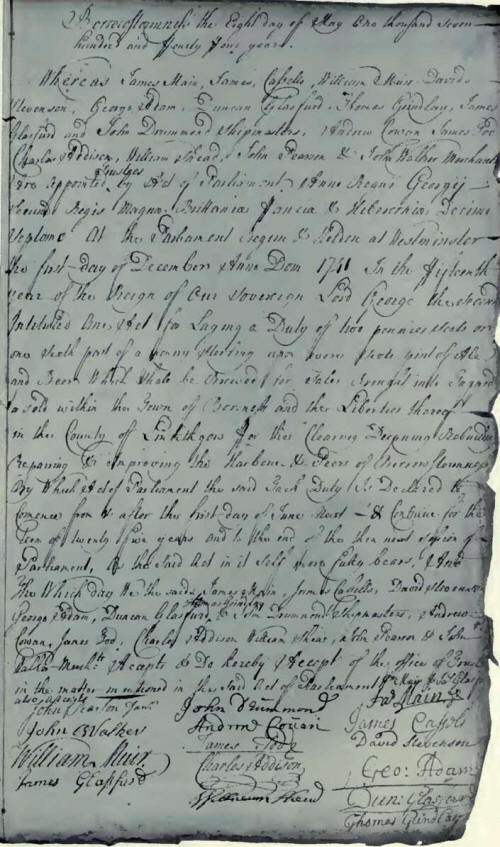 Borrowstounness the Eight day of May One thousand seven
hundred and fourty four years.
Whereas James Main, James Cassells, William Muir, David
Stevenson, George Adam, Duncan Glasfurd, Thomas Grindlay, James
Glasfurd and John Drummond Shipmasters, Andrew Cowan James Tod
Charles Addison, William Shead, John Pearson & John Walker Merchants
Are Appointed Trustees by Act of Parliament Anno Regni Georgij
Secundi Regis Magna Brittania Francia & Hibernia Decimo
Septimo At the Parliament Begun & Holden at Westminster
the first day of December Anno Dom 1741 In the fifteenth
year of the Reign of Our Sovereign Lord George the second
Intituled One Act for Laying a Duty of two pennies Scots or
one sixth part of a penny sterling upon every Scots pint of Ale
and Beer Which shall be Brewed for Sale Brought into
& sold within the Town of and the Liberties thereof
in the County of Linlithgow for the Clearing Deepning Rebuilding
Repairing & Improving the Harbour & Peers of Borrowstounness
By Which Act of Parliament the said Duty Is Declared to
Comence from & after the first day of June & Continue for the
Term of twenty five years and to the end of the then next session of
Parliament, As the Said Act in it self more fully bears, And
The Which day We the saids James Main, James Cassells, David Stevenson
George Adam, Duncan Glasfurd, Thomas Grindlay & John Drummond Shipmasters, Andrew
Cowan, James Tod, Charles Addison William Shead, John Pearson & John
Walker Merchts Accepts & Do hereby Accept of the office of
in the matter mentioned in the Said Act of Parliament
also accepts
John Pearson John Drummond Jas Main
John Walker Andrew Cowan James Cassels
William Muir James Todd David Stevenson
James Glassfurd Charles Addison Geo: Adam
William Shead Dun: Glasfurd
Thomas Grindlay